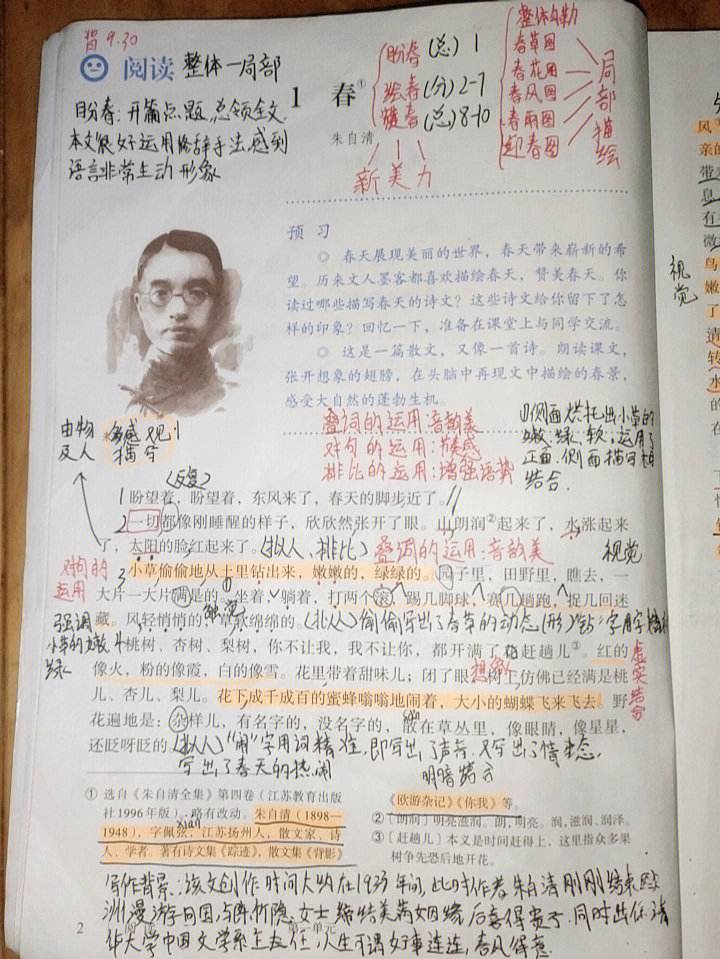 9.30
阅读 整体一局部
盼春:开篇点题,总领全文.
本文很好运用修辞手法,感到
语言非常生动 形象
1 春①
朱自清
盼春(总) 1
绘春(分) 2-7
赞春(总) 8-10
新 美 力
整体勾勒
春草图
春花图
春风图
春雨图
迎春图
局部描绘
预 习
◎ 春天展现美丽的世界,春天带来崭新的希
望。历来文人墨客都喜欢描绘春天,赞美春天。你
读过哪些描写春天的诗文?这些诗文给你留下了怎
样的印象?回忆一下,准备在课堂上与同学交流。
◎ 这是一篇散文,又像一首诗。朗读课文,
张开想象的翅膀,在头脑中再现文中描绘的春景,
感受大自然的蓬勃生机。
由物
及人
多感观
描写
叠词的运用:音韵美
对句的运用:节奏感
排比的运用:增强语势
侧面烘托出小草的
嫩、绿、软;运用了
正面、侧面描写相
结合.
(反复)
1 盼望着,盼望着,东风来了,春天的脚步近了。
2 一切都像刚睡醒的样子,欣欣然张开了眼。山朗润②起来了,水涨起来
了,太阳的脸红起来了。(拟人、排比) 叠词的运用:音韵美 视觉
3 小草偷偷地从土里钻出来,嫩嫩的,绿绿的。园子里,田野里,瞧去,一
大片一大片满是的。坐着,躺着,打两个滚,踢几脚球,赛几趟跑,捉几回迷
藏。风轻悄悄的,草软绵绵的。(拟人)偷偷写出了春草的动态(形)
触觉
对句的
运用
强调
小草的嫩
绿
4 桃树、杏树、梨树,你不让我,我不让你,都开满了花赶趟儿③。红的
像火,粉的像霞,白的像雪。花里带着甜味儿;闭了眼,树上仿佛已经满是桃
想象
虚实结合
儿、杏儿、梨儿。花下成千成百的蜜蜂嗡嗡地闹着,大小的蝴蝶飞来飞去。野
花遍地是:杂样儿,有名字的,没名字的,散在草丛里,像眼睛,像星星,
还眨呀眨的。(拟人)“闹”字用词精准,即写出了声音,又写出了情态,
写出了春天的热闹
明暗结合
① 选自《朱自清全集》第四卷(江苏教育出版
社1996年版)。略有改动。朱自清(1898—
1948),字佩弦,江苏扬州人,散文家、诗
xián
人、学者。著有诗文集《踪迹》,散文集《背影》
《欧游杂记》《你我》等。
② 〔朗润〕明亮滋润。朗,明亮。润,滋润、润泽。
③ 〔赶趟儿〕本义是时间赶得上,这里指众多果
树争先恐后地开花。
写作背景:该文创作时间大约在1933年间,此时作者朱自清刚刚结束欧
洲漫游回国,与陈竹隐女士缔结美满姻缘,后喜得贵子,同时出任清
华大学中国文学系主任,人生可谓好事连连,春风得意.
2 阅读 第一单元
视觉